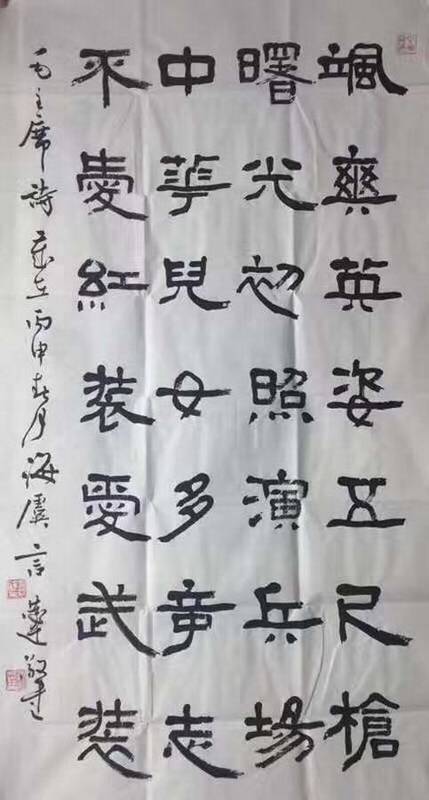 颯爽英姿五尺槍
曙光初照演兵場
中華兒女多奇志
不愛紅裝愛武裝
毛主席詩歲在丙申春月海虞言恭達敬書